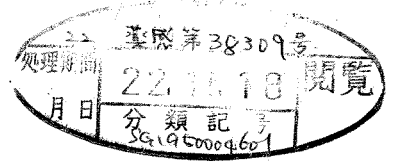 22 薬器第38309号
処理期間 22.11.18 閲覧
月日
分類記号
SG1950004601